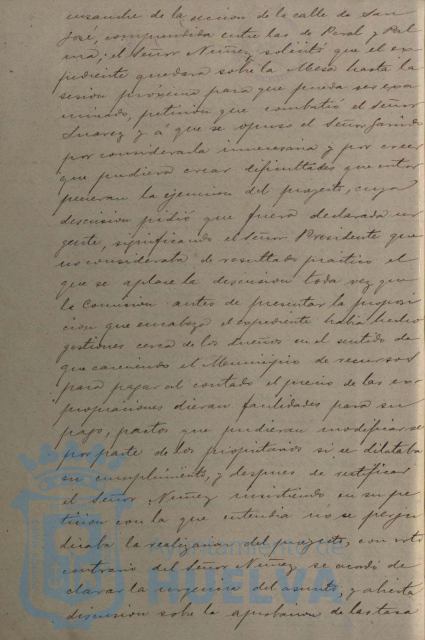 ensanche de la seccion de la calle de San
José, comprendida entre las de Peral y Pal
ma; el Señor Nuñez solicitó que el ex-
pediente quedara sobre la Mesa hasta la
sesion próxima para que pueda ser exa
minado, peticion que combatió el Señor
Suarez y á que se opuso el Señor Garrido
por considerarla innecesaria y por creer
que pudiera crear dificultades que entor
pecieran la ejecucion del proyecto, cuya
discusion pidió que fuera declarada ur
gente, significando el Señor Presidente que
no consideraba de resultado práctico el
que se aplace la discusion toda vez que
la Comision antes de presentar la proposi
cion que encabeza el expediente habia hecho
gestiones cerca de los dueños en el sentido de
que careciendo el Municipio de recursos
para pagar al contado el precio de las ex
propiaciones dieran facilidades para su
pago, pactos que pudieran modificarse
por parte de los propietarios si se dilataba
su cumplimiento, y despues de rectificar
el Señor Nuñez insistiendo en su pe
ticion con la que entendia no se perju
dicaba la realizacion del proyecto, con voto
contrario del Señor Nuñez se acordó de
clarar la urgencia del asunto, y abierta
discusion sobre la aprobacion de las tasa
Ayuntamiento de
HUELVA